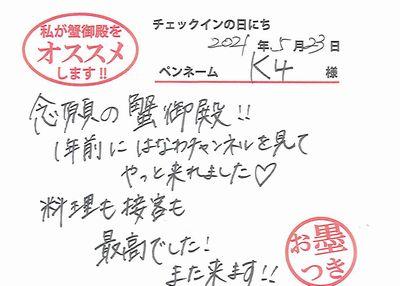 私が蟹御殿を
オススメ
します!!
チェックインの日にち
2021年5月23日
ペンネーム K4 様
念願の蟹御殿!!
1年前にはなわチャンネルを見て
やっと来れました♡
料理も接客も
最高でした!
また来ます!!
お墨
つき